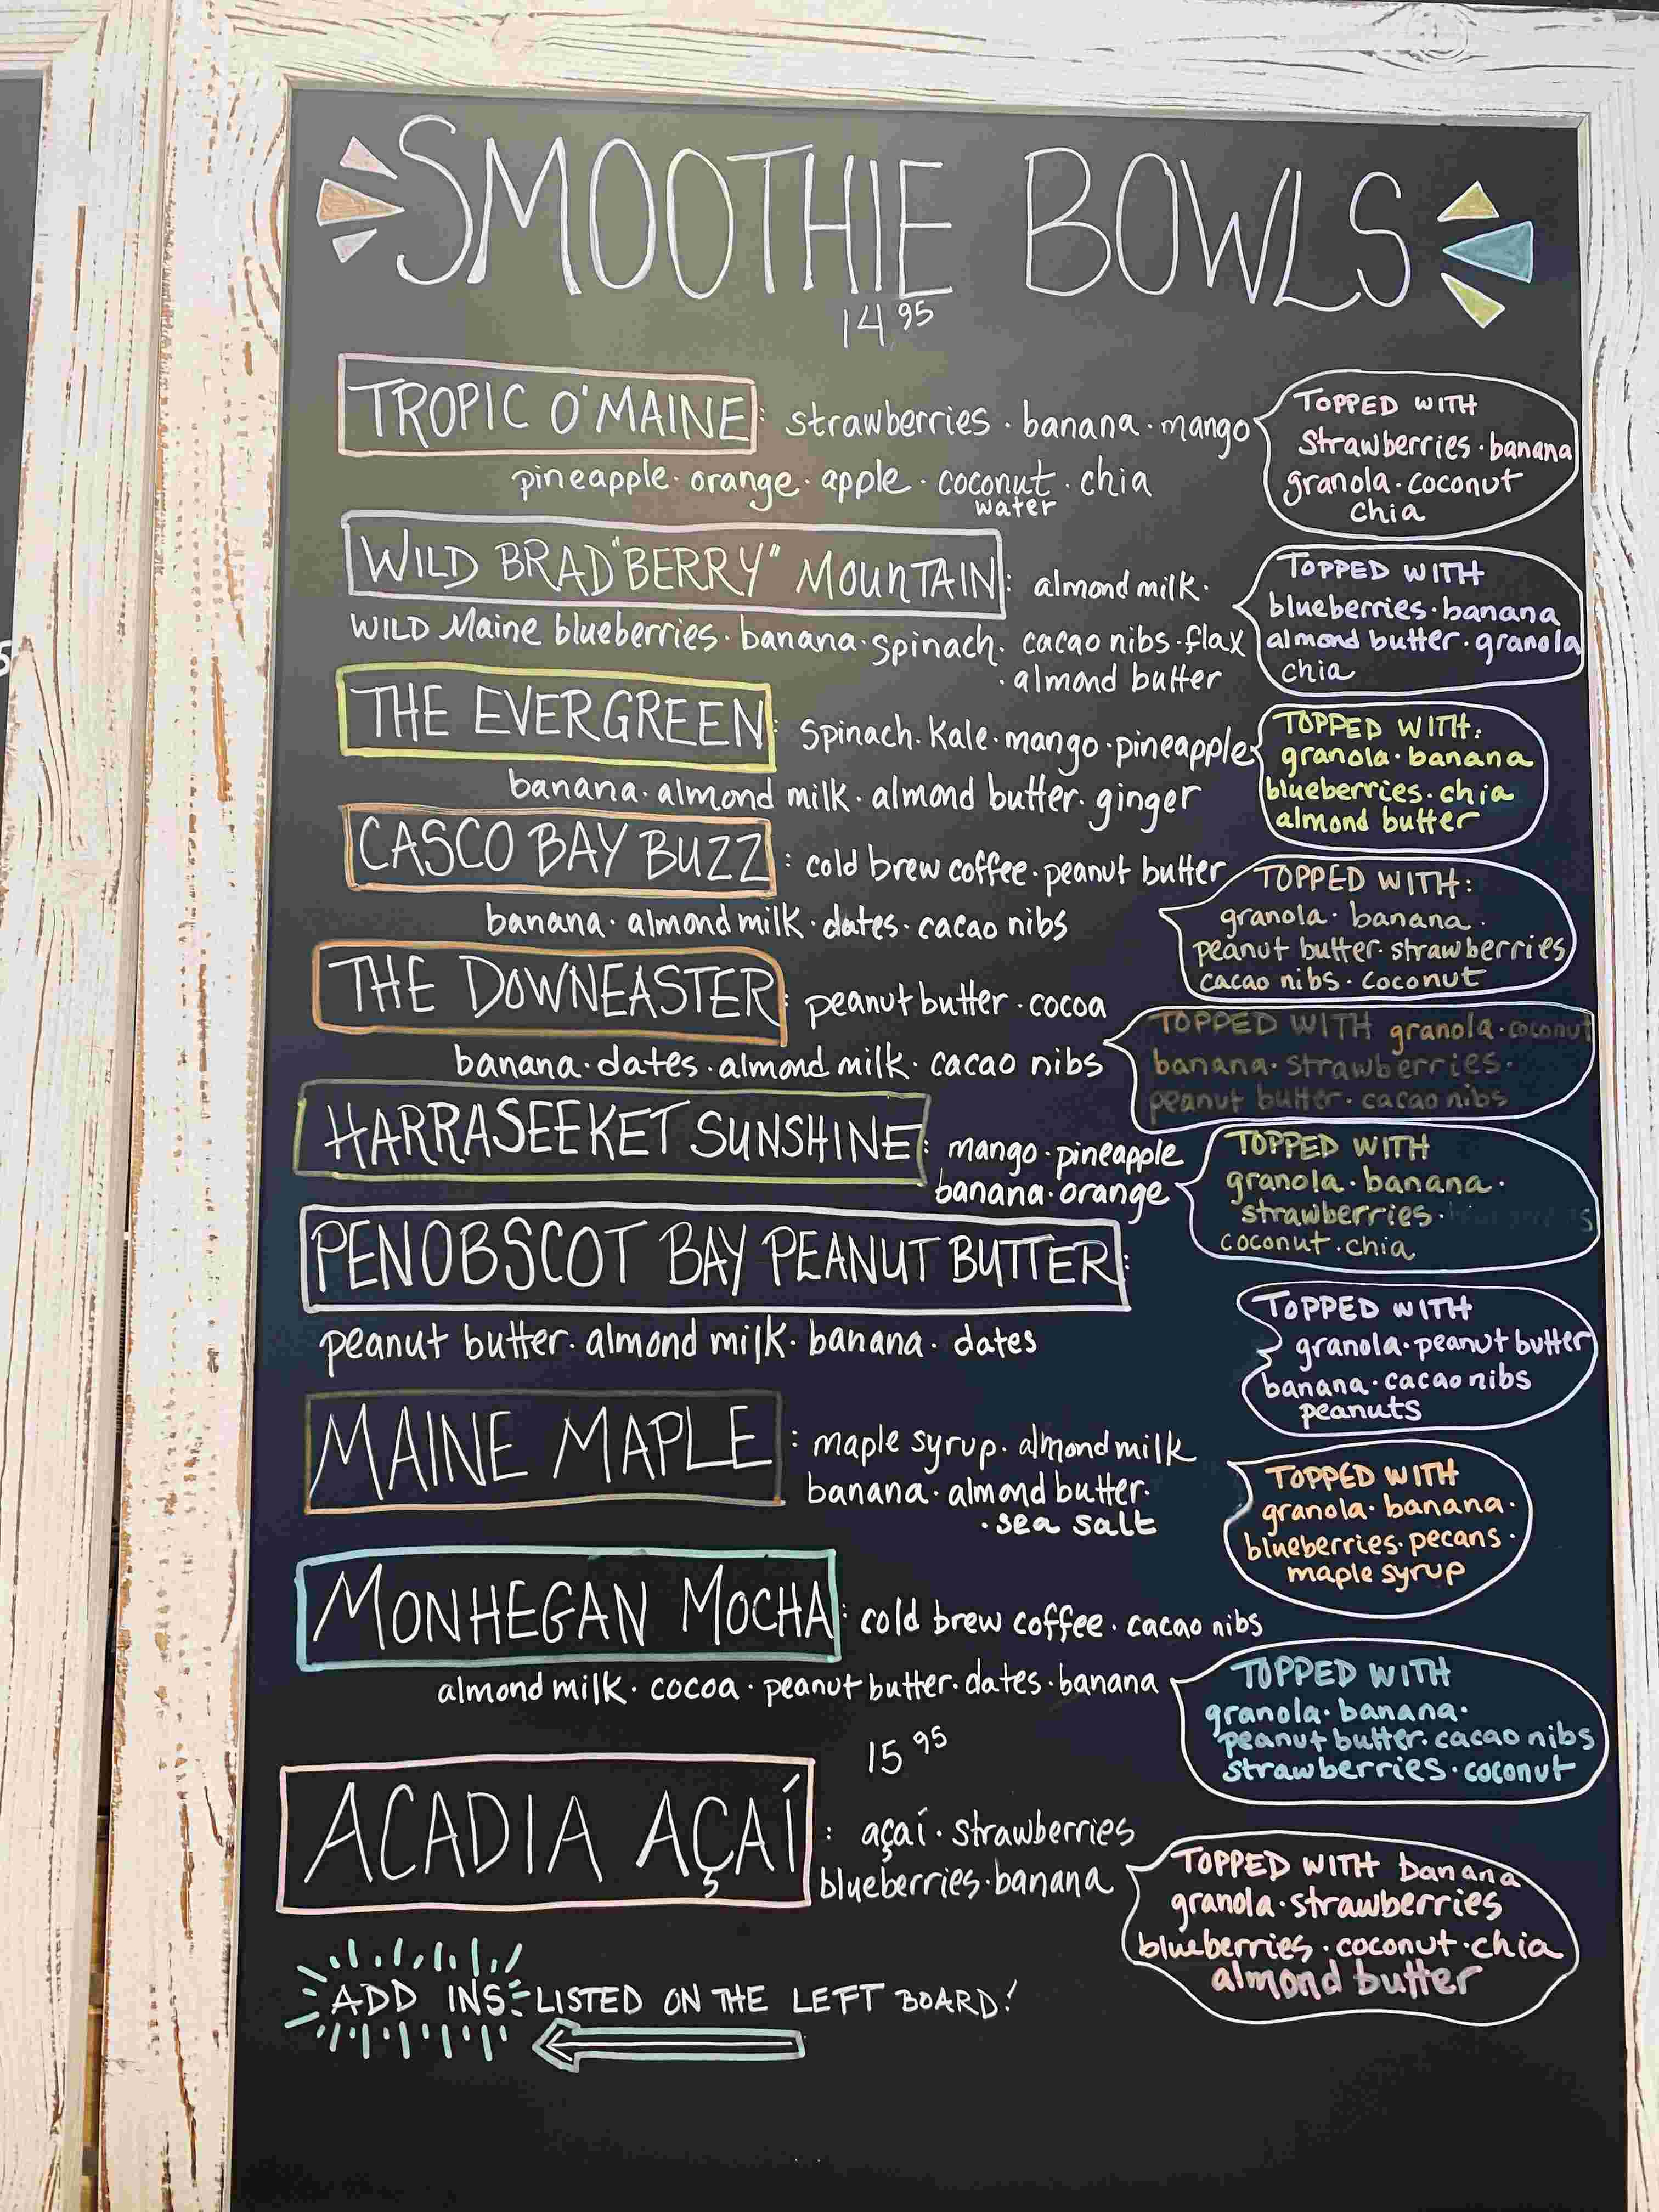 SMOOTHIE BOWLS
14.95
TROPIC O'MAINE: strawberries · banana · mango
pineapple · orange · apple · coconut water · chia
TOPPED WITH
strawberries · banana
granola · coconut
chia
WILD BRAD"BERRY" MOUNTAIN: almond milk ·
WILD Maine blueberries · banana · spinach · cacao nibs · flax
· almond butter
TOPPED WITH
blueberries · banana
almond butter · granola
chia
THE EVERGREEN: Spinach · Kale · mango · pineapple
banana · almond milk · almond butter · ginger
TOPPED WITH:
granola · banana
blueberries · chia
almond butter
CASCO BAY BUZZ: cold brew coffee · peanut butter
banana · almond milk · dates · cacao nibs
TOPPED WITH:
granola · banana ·
peanut butter · strawberries
cacao nibs · coconut
THE DOWNEASTER: peanut butter · cocoa
banana · dates · almond milk · cacao nibs
TOPPED WITH granola · coconut
banana · strawberries ·
peanut butter · cacao nibs
HARRASEEKET SUNSHINE: mango · pineapple
banana · orange
TOPPED WITH
granola · banana ·
strawberries ·
coconut · chia
PENOBSCOT BAY PEANUT BUTTER:
peanut butter · almond milk · banana · dates
TOPPED WITH
granola · peanut butter
banana · cacao nibs
peanuts
MAINE MAPLE: maple syrup · almond milk
banana · almond butter ·
· sea salt
TOPPED WITH
granola · banana ·
blueberries · pecans ·
maple syrup
MONHEGAN MOCHA: cold brew coffee · cacao nibs
almond milk · cocoa · peanut butter · dates · banana
TOPPED WITH
granola · banana ·
peanut butter · cacao nibs
strawberries · coconut
15.95
ACADIA AÇAÍ: açaí · strawberries
blueberries · banana
TOPPED WITH banana
granola · strawberries
blueberries · coconut · chia
almond butter
ADD INS LISTED ON THE LEFT BOARD!